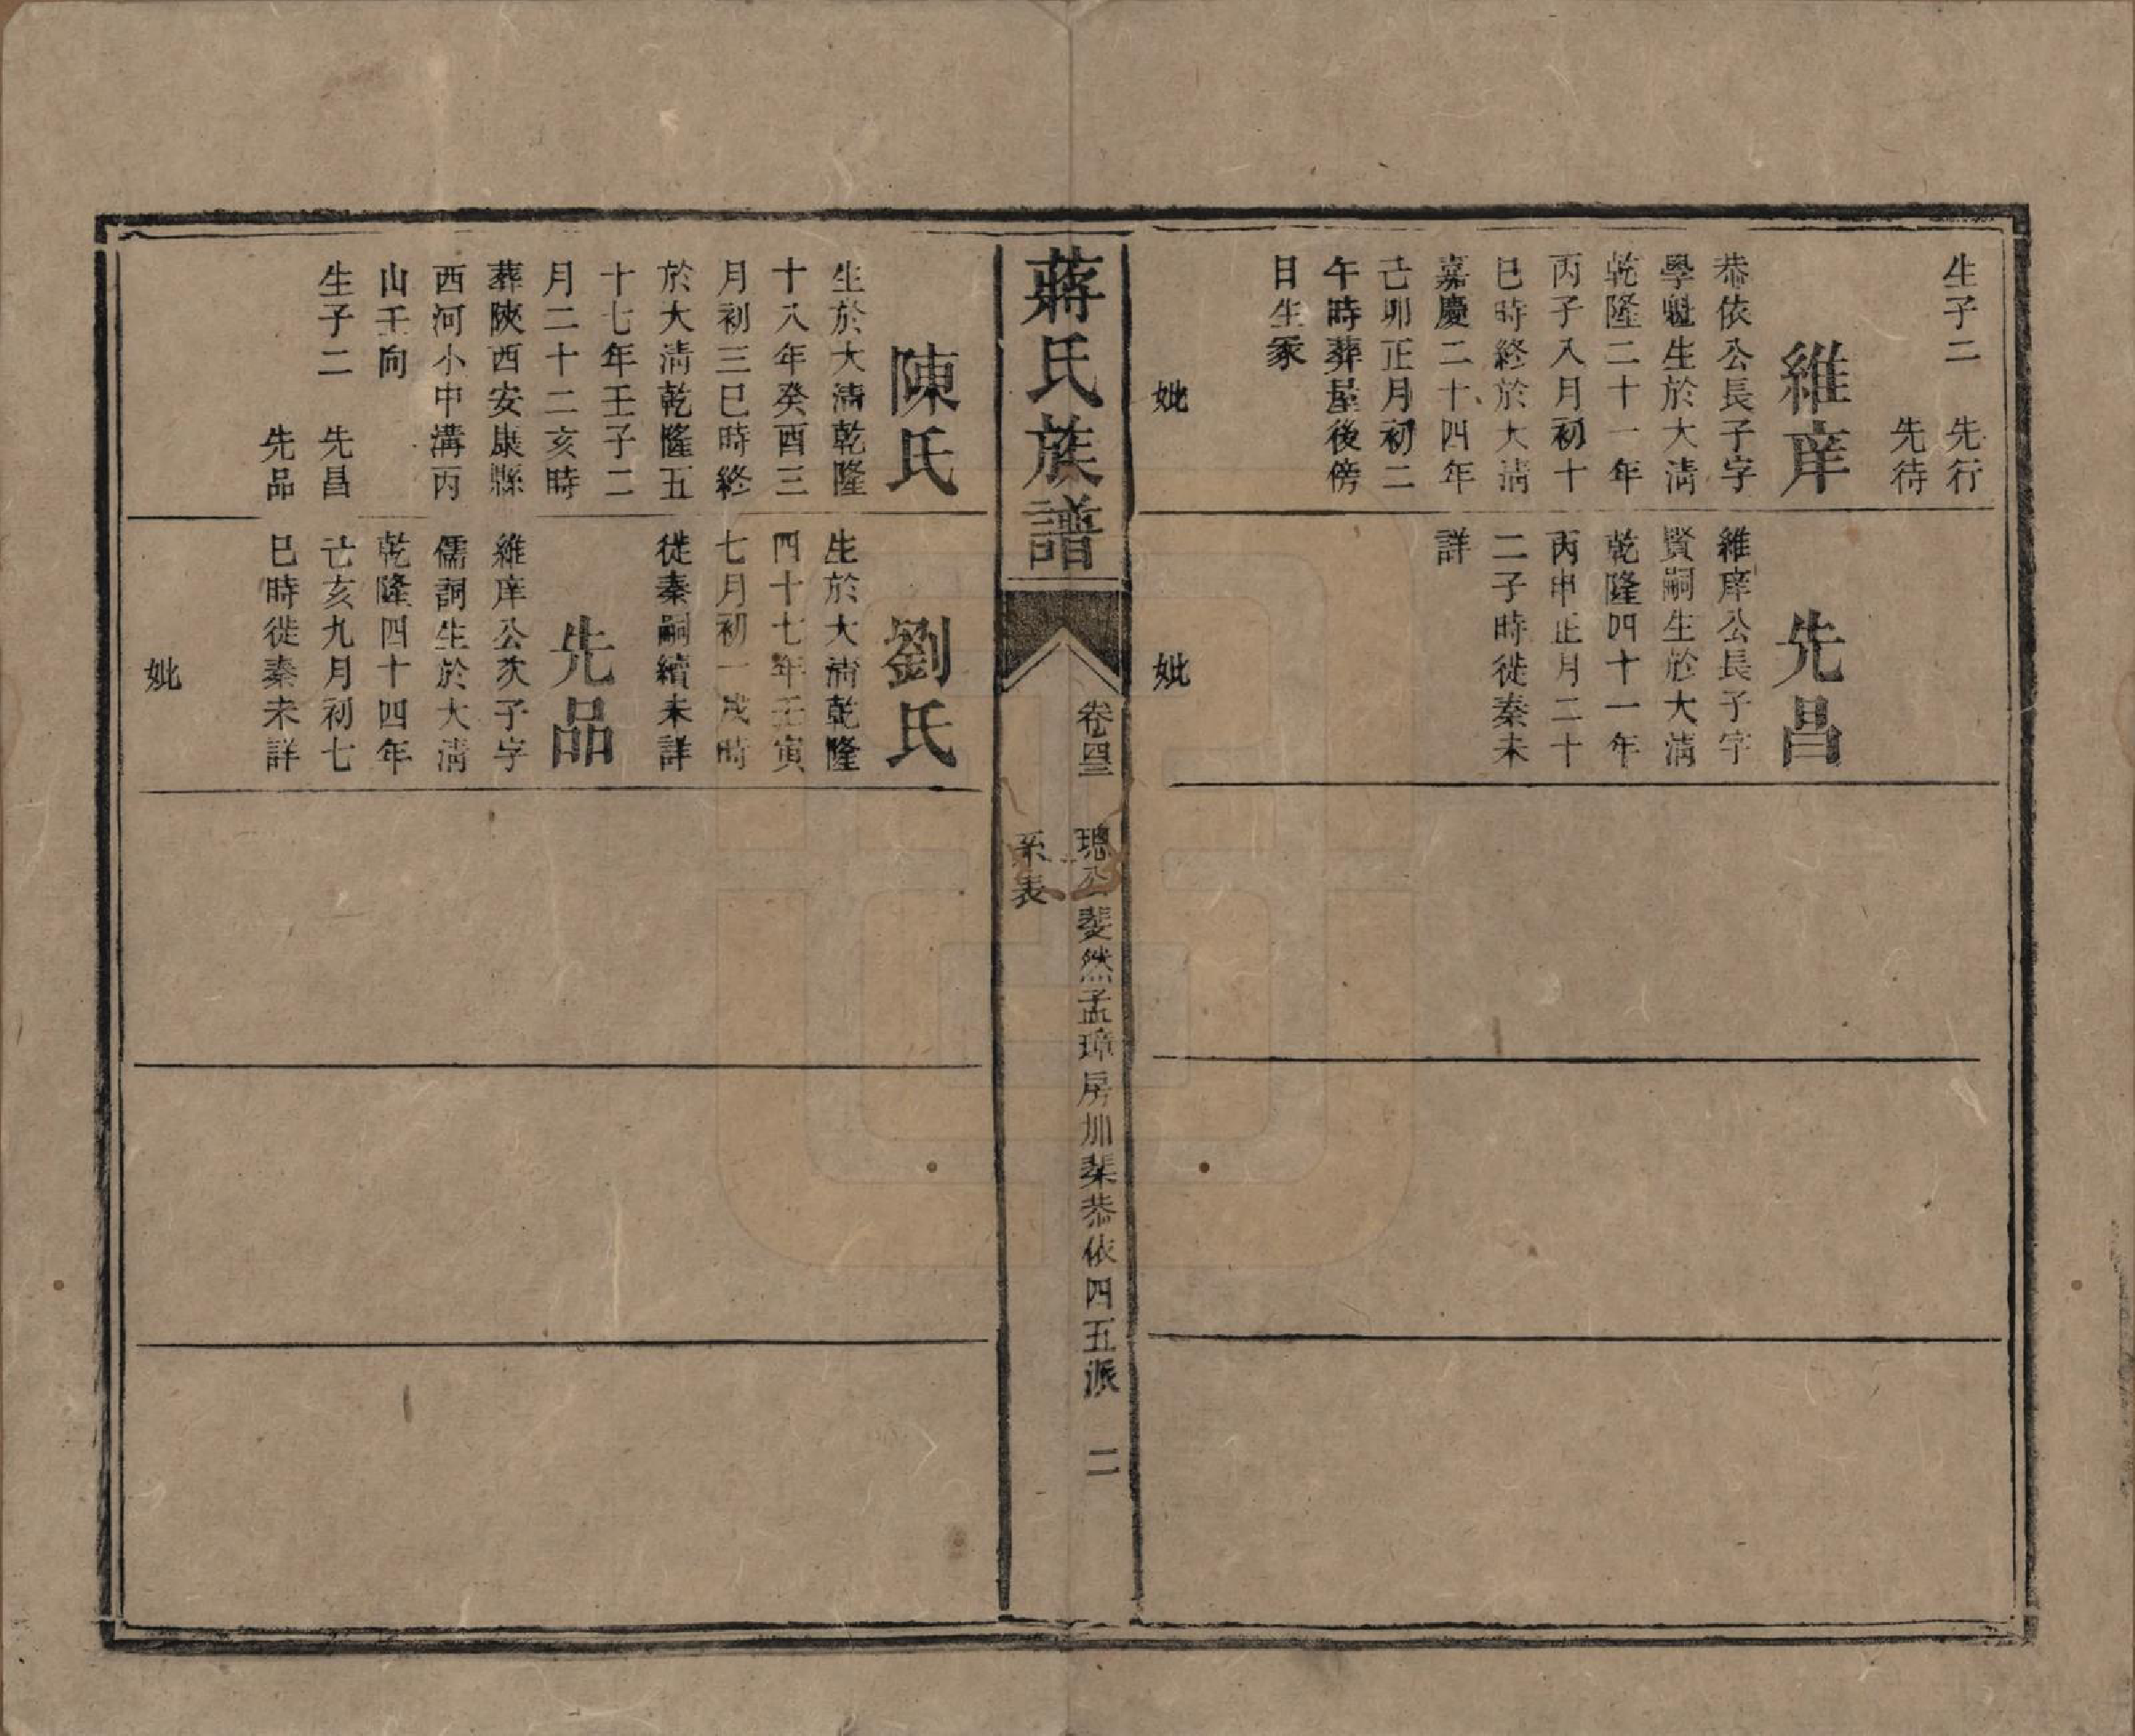 生子二　先行
先待
維庠
恭依公長子字
學魁生於大淸
乾隆二十一年
丙子八月初十
巳時終於大淸
嘉慶二十四年
己卯正月初二
午時葬屋後傍
目生冢
妣
先昌
維庠公長子字
賢嗣生於大淸
乾隆四十一年
丙申正月二十
二子時徙秦未
詳
妣
蔣氏蔟譜
卷四三　璁公斐然孟璋房加棐恭依四五派　二
系表
陳氏
生於大淸乾隆
十八年癸酉三
月初三巳時終
於大淸乾隆五
十七年壬子二
月二十二亥時
葬陝西安康縣
西河小中溝丙
山壬向
生子二　先昌
先品
劉氏
生於大淸乾隆
四十七年壬寅
七月初一戌時
徙秦嗣續未詳
先品
維庠公次子字
儒詞生於大淸
乾隆四十四年
己亥九月初七
巳時徙秦未詳
妣